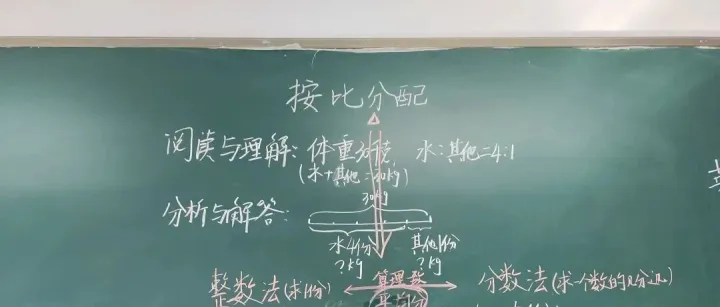 按比分配
阅读与理解: 体重 水:其他=4:1
(水+其他=30kg)
30kg
分析与解答:
水4份 其他1份
?kg ?kg
整数法(求1份) 算理 分数法(求一个数的几分之几)
平均分